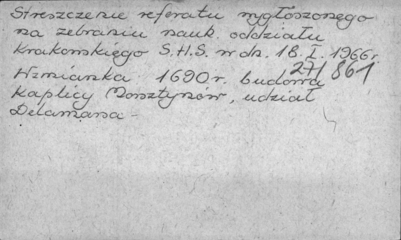 Streszczenie referatu wygłoszonego
na zebraniu nauk. oddziału
krakowskiego S.H.S. w dn. 18.I.1966r.
27/861
Wzmianka 1690r. budowa
kaplicy Morsztynów, udział
Delamarsa -